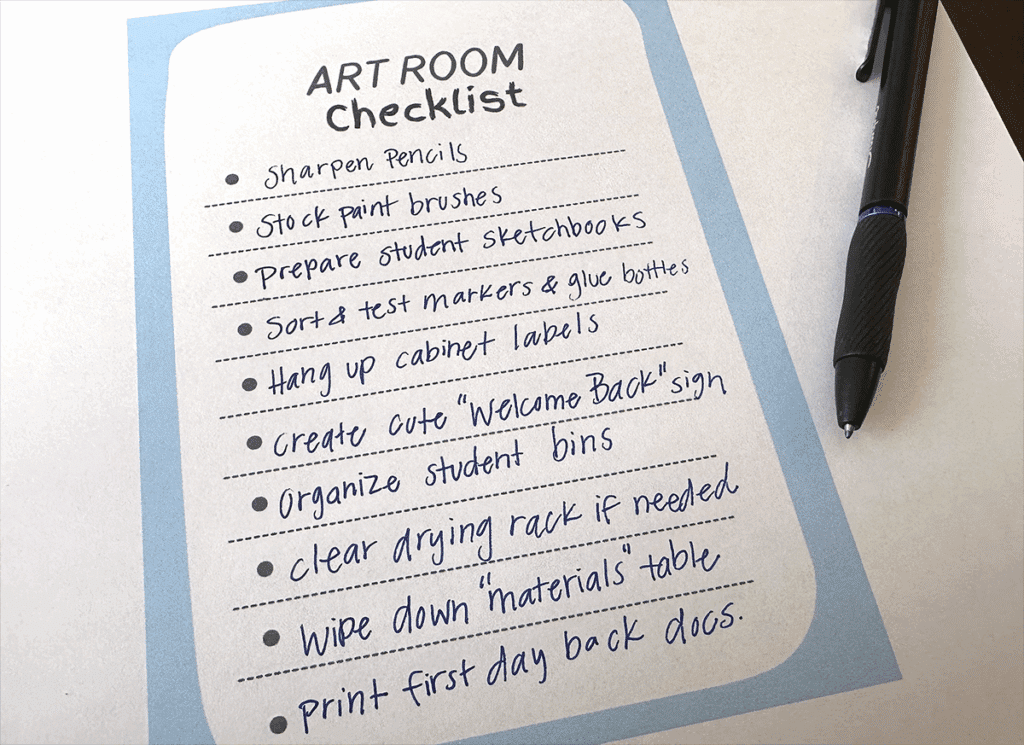 ART ROOM
Checklist
Sharpen Pencils
Stock paint brushes
Prepare student sketchbooks
Sort & test markers & glue bottles
Hang up cabinet labels
Create cute "Welcome Back" sign
Organize student bins
clear drying rack if needed
Wipe down "materials" table
print first day back docs.